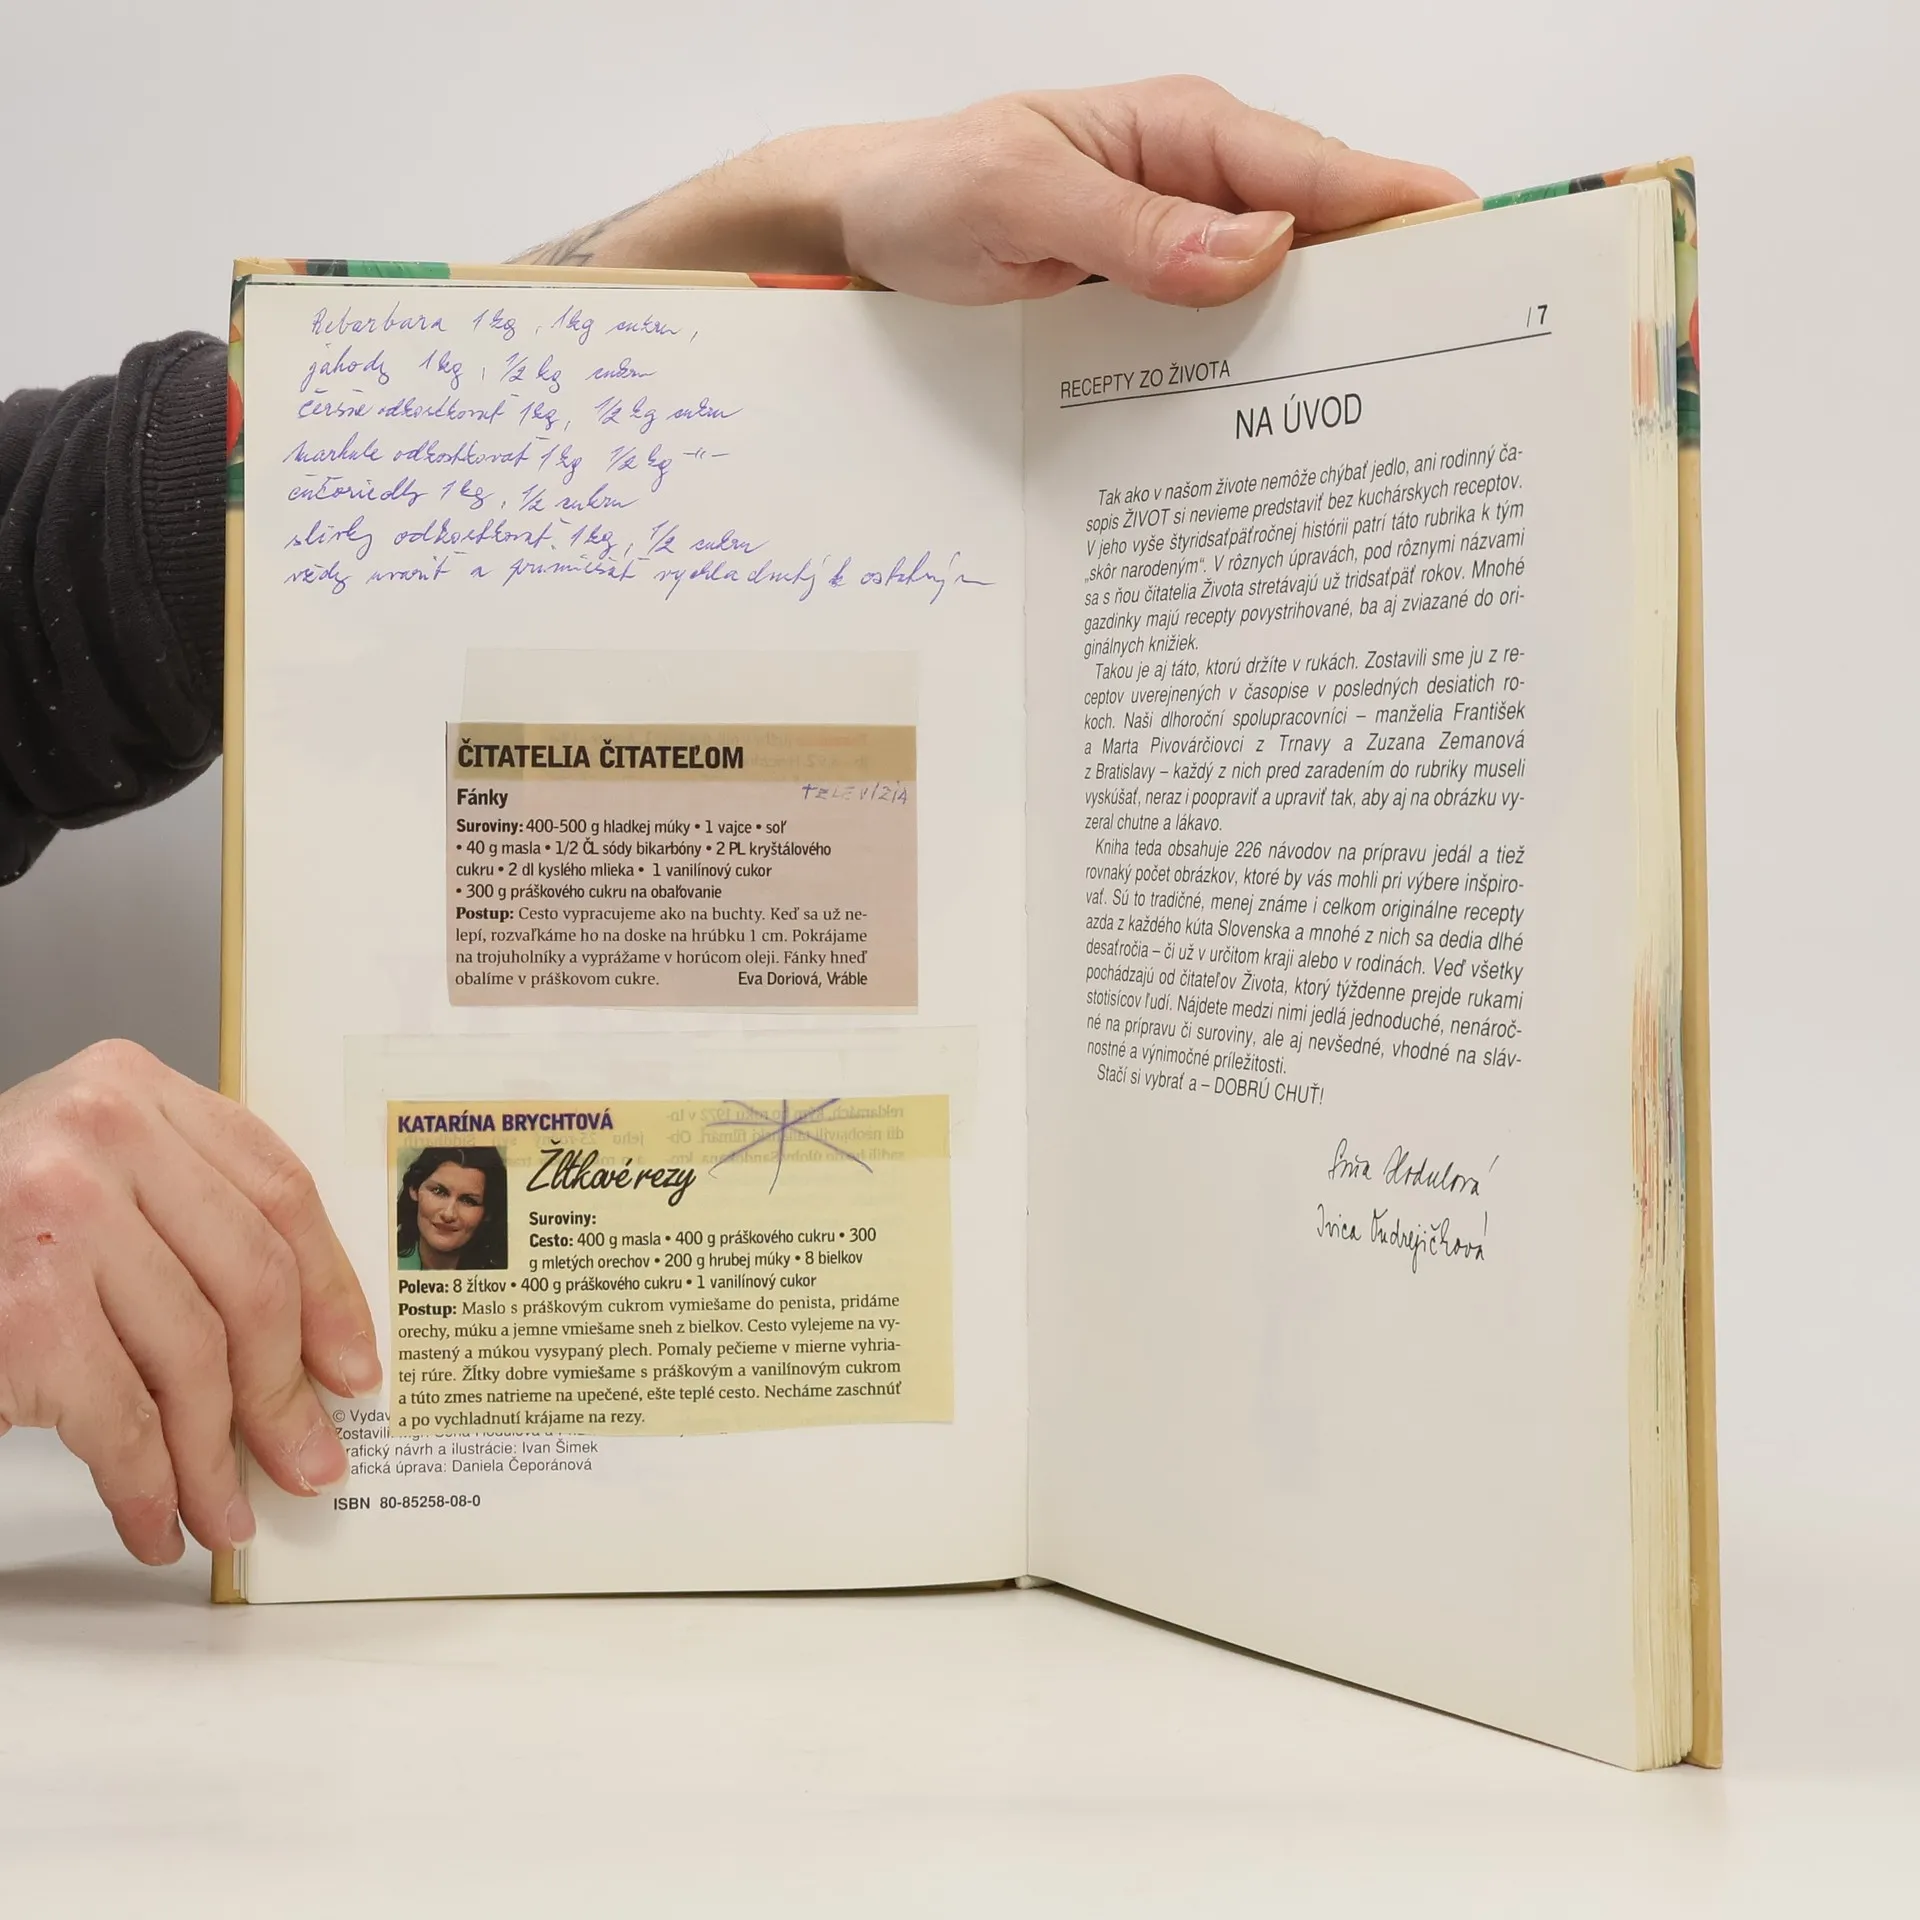 Rebarbara 1 kg, 1kg cukru,
jahody 1 kg, 1/2 kg cukru
čerešne odkostkovať 1kg, 1/2 kg cukru
marhule odkostkovať 1 kg 1/2 kg -"-
čučoriedky 1 kg, 1/2 cukru
slivky odkostkovať 1 kg, 1/2 cukru
vždy uvariť a primiešať
ČITATELIA ČITATEĽOM
TELEVÍZIA
Fánky
Suroviny: 400-500 g hladkej múky • 1 vajce • soľ
• 40 g masla • 1/2 ČL sódy bikarbóny • 2 PL kryštálového
cukru • 2 dl kyslého mlieka • 1 vanilínový cukor
• 300 g práškového cukru na obaľovanie
Postup: Cesto vypracujeme ako na buchty. Keď sa už ne-
lepí, rozvaľkáme ho na doske na hrúbku 1 cm. Pokrájame
na trojuholníky a vyprážame v horúcom oleji. Fánky hneď
obalíme v práškovom cukre. Eva Doriová, Vráble
KATARÍNA BRYCHTOVÁ
Žĺtkové rezy
Suroviny:
Cesto: 400 g masla • 400 g práškového cukru • 300
g mletých orechov • 200 g hrubej múky • 8 bielkov
Poleva: 8 žĺtkov • 400 g práškového cukru • 1 vanilínový cukor
Postup: Maslo s práškovým cukrom vymiešame do penista, pridáme
orechy, múku a jemne vmiešame sneh z bielkov. Cesto vylejeme na vy-
mastený a múkou vysypaný plech. Pomaly pečieme v mierne vyhria-
tej rúre. Žĺtky dobre vymiešame s práškovým a vanilínovým cukrom
a túto zmes natrieme na upečené, ešte teplé cesto. Necháme zaschnúť
a po vychladnutí krájame na rezy.
© Vydav
Zostavili:
rafický návrh a ilustrácie: Ivan Šimek
afická úprava: Daniela Čeporánová
ISBN 80-85258-08-0
/ 7
RECEPTY ZO ŽIVOTA
NA ÚVOD
Tak ako v našom živote nemôže chýbať jedlo, ani rodinný ča-
sopis ŽIVOT si nevieme predstaviť bez kuchárskych receptov.
V jeho vyše štyridsaťpäťročnej histórii patrí táto rubrika k tým
„skôr narodeným“. V rôznych úpravách, pod rôznymi názvami
sa s ňou čitatelia Života stretávajú už tridsaťpäť rokov. Mnohé
gazdinky majú recepty povystrihované, ba aj zviazané do ori-
ginálnych knižiek.
Takou je aj táto, ktorú držíte v rukách. Zostavili sme ju z re-
ceptov uverejnených v časopise v posledných desiatich ro-
koch. Naši dlhoroční spolupracovníci – manželia František
a Marta Pivovárčiovci z Trnavy a Zuzana Zemanová
z Bratislavy – každý z nich pred zaradením do rubriky museli
vyskúšať, neraz i poopraviť a upraviť tak, aby aj na obrázku vy-
zeral chutne a lákavo.
Kniha teda obsahuje 226 návodov na prípravu jedál a tiež
rovnaký počet obrázkov, ktoré by vás mohli pri výbere inšpiro-
vať. Sú to tradičné, menej známe i celkom originálne recepty
azda z každého kúta Slovenska a mnohé z nich sa dedia dlhé
desaťročia – či už v určitom kraji alebo v rodinách. Veď všetky
pochádzajú od čitateľov Života, ktorý týždenne prejde rukami
stotisícov ľudí. Nájdete medzi nimi jedlá jednoduché, nenároč-
né na prípravu či suroviny, ale aj nevšedné, vhodné na sláv-
nostné a výnimočné príležitosti.
Stačí si vybrať a – DOBRÚ CHUŤ!
Hodulová
Ivica Ondrejičková